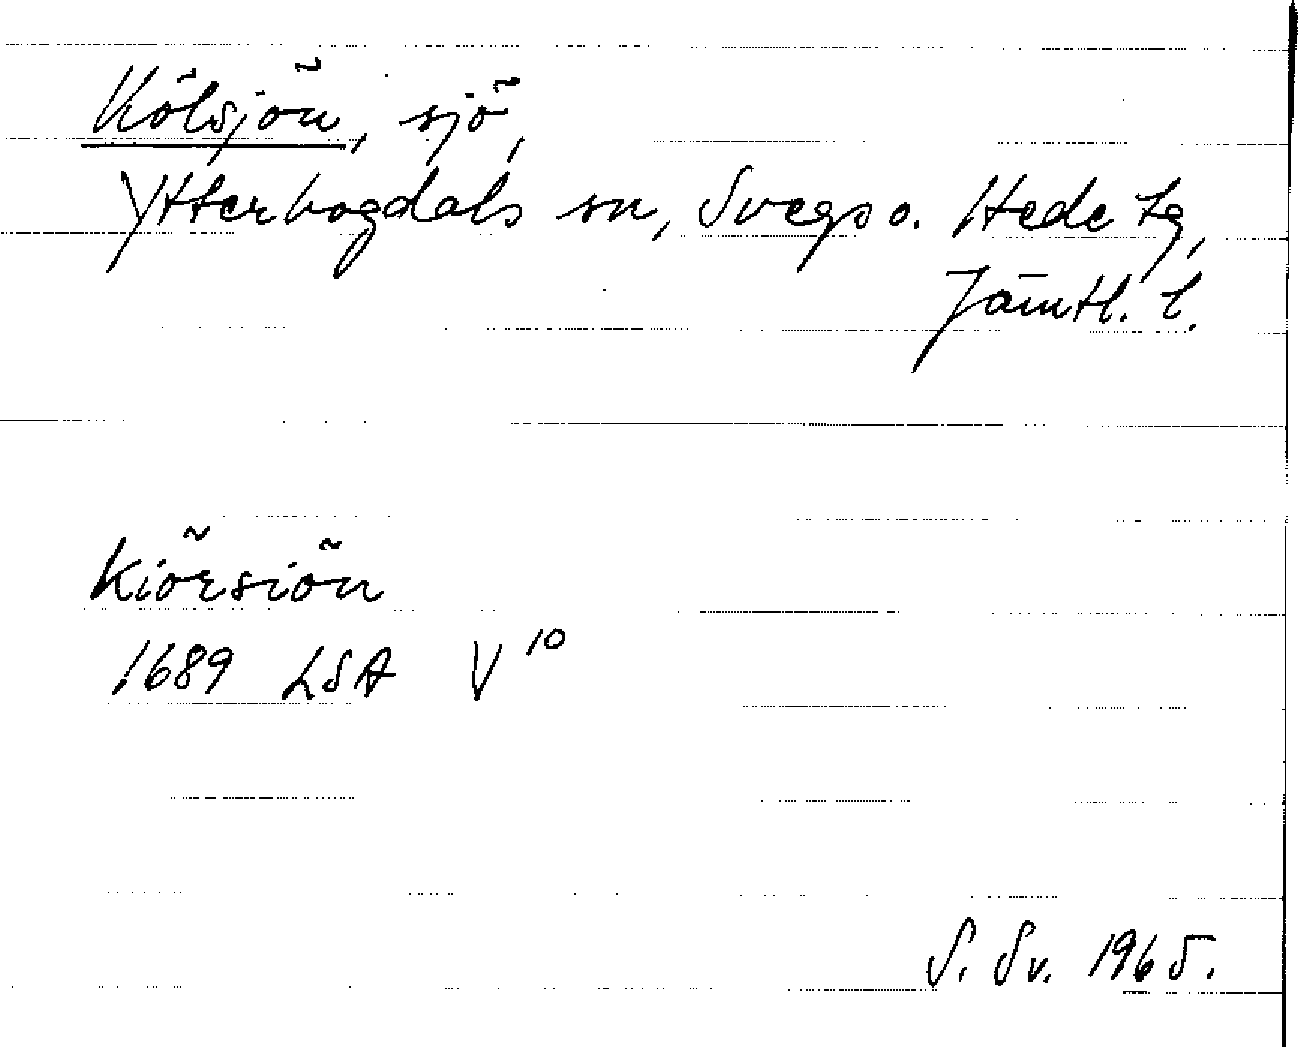 Kölsjön, sjö,
Ytterhogdals sn, Svegs o. Hede tg,
Jämtl. l.
Kiörsiön
1689 LSA V 10
S. Sv. 1965.